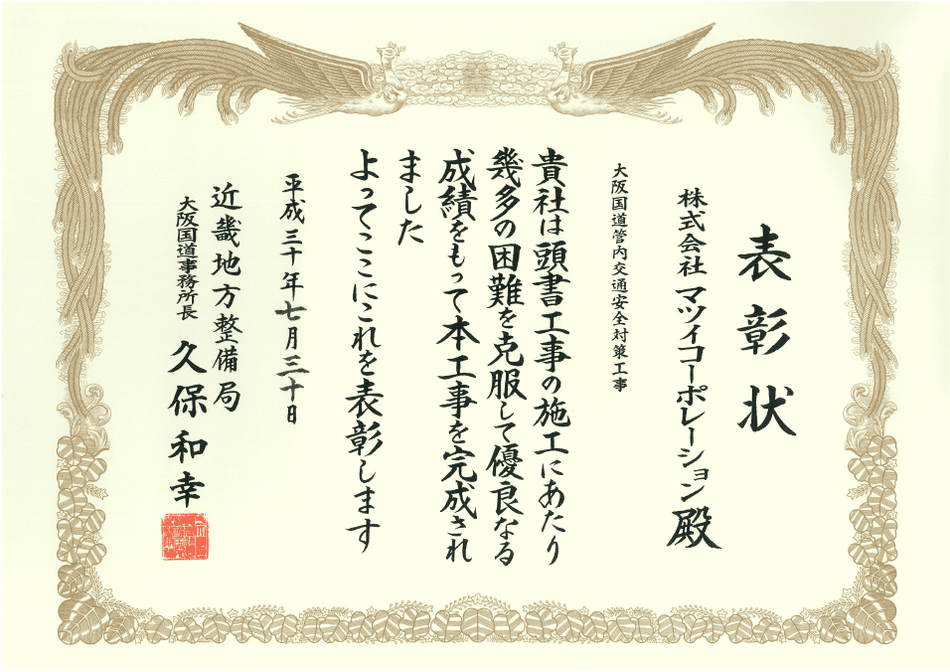 表彰状
株式会社 マツイコーポレーション 殿
大阪国道管内交通安全対策工事
貴社は頭書工事の施工にあたり
幾多の困難を克服して優良なる
成績をもって本工事を完成され
ました
よってここにこれを表彰します
平成三十年七月三十日
近畿地方整備局
大阪国道事務所長 久保和幸